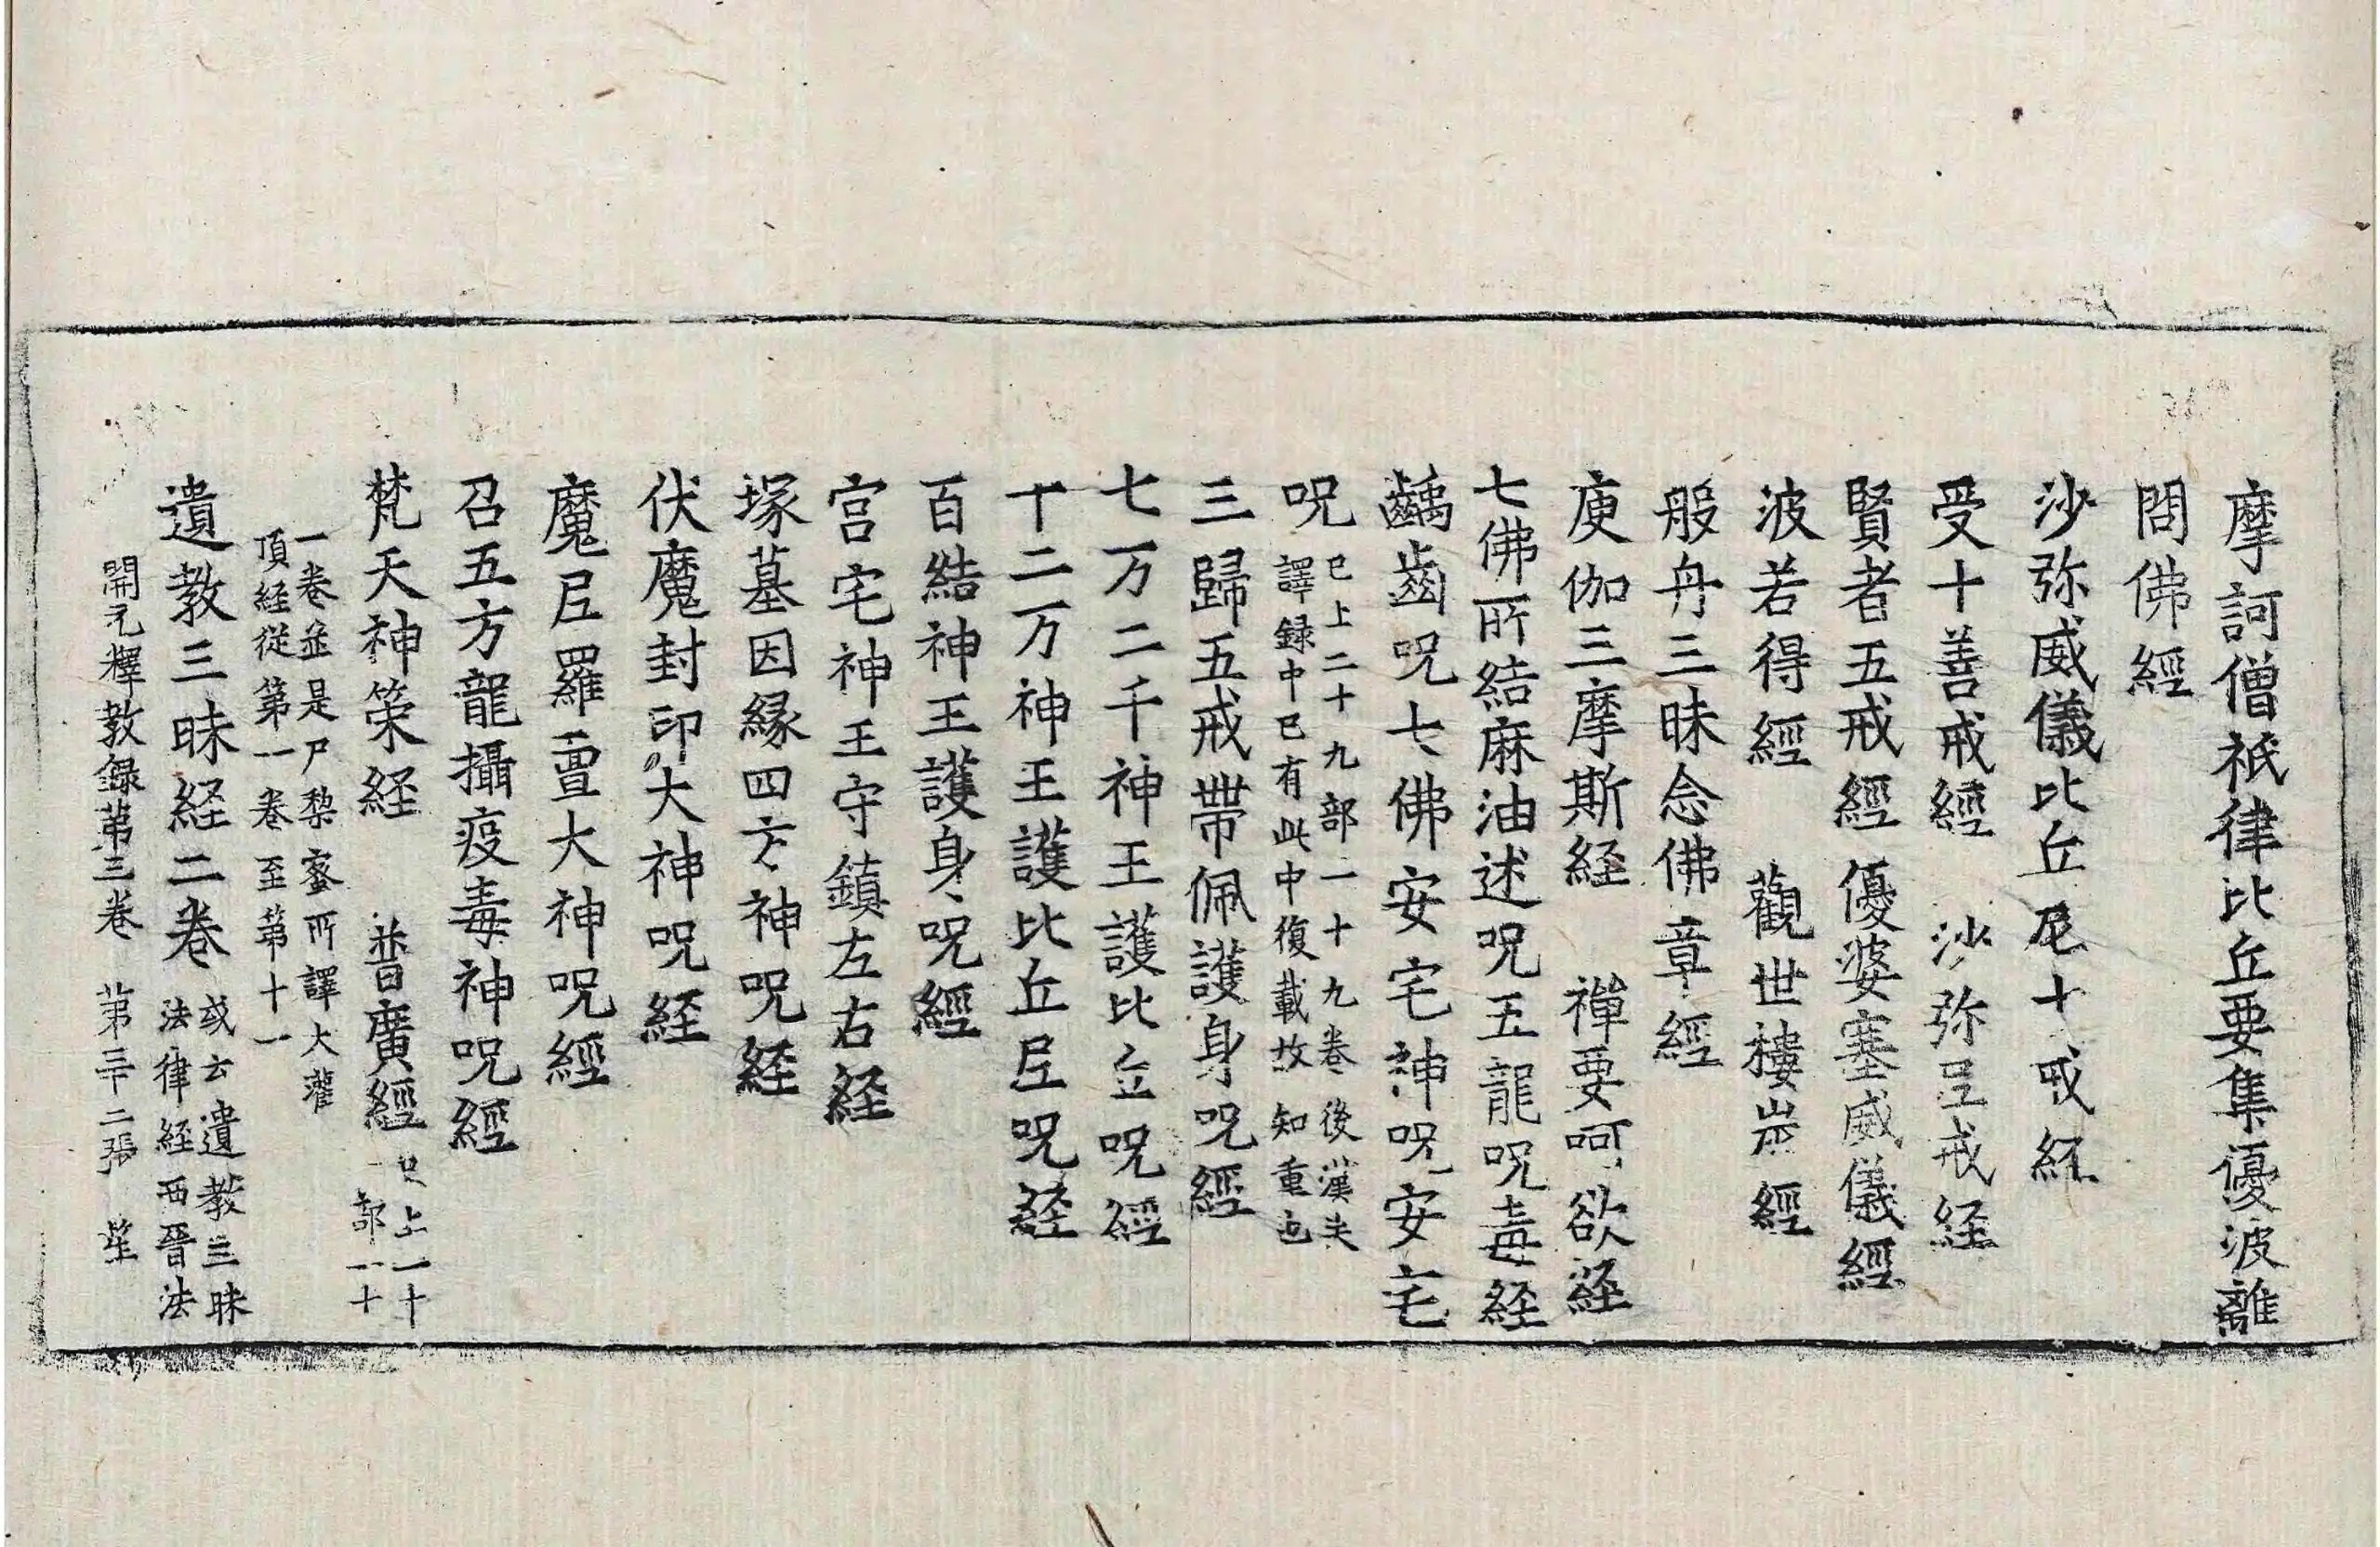 摩訶僧祇律比丘要集優波離
問佛經
沙弥威儀比丘尼十戒経
受十善戒經　沙弥尼戒経
賢者五戒經　優婆塞威儀經
波若得經　觀世樓炭經
般舟三昧念佛章經
庾伽三摩斯経　禪要呵欲経
七佛所結麻油述呪五龍呪毒経
齲齒呪七佛安宅神呪安宅
呪已上二十九部一十九卷後漢失
譯録中已有此中復載故知重也
三歸五戒帶佩護身呪經
七万二千神王護比丘呪經
十二万神王護比丘尼呪経
百結神王護身呪經
宫宅神王守鎮左右経
塚墓因縁四方神呪経
伏魔封印大神呪経
魔尼羅亶大神呪經
召五方龍攝疫毒神呪經
梵天神策経　普廣經已上一十
一部一十
一卷並是尸黎蜜所譯大灌
頂経從第一卷至第十一
遺教三昧経二卷或云遺教三昧
法律経西晉法
開元釋教録第三卷　第三十二張　笙